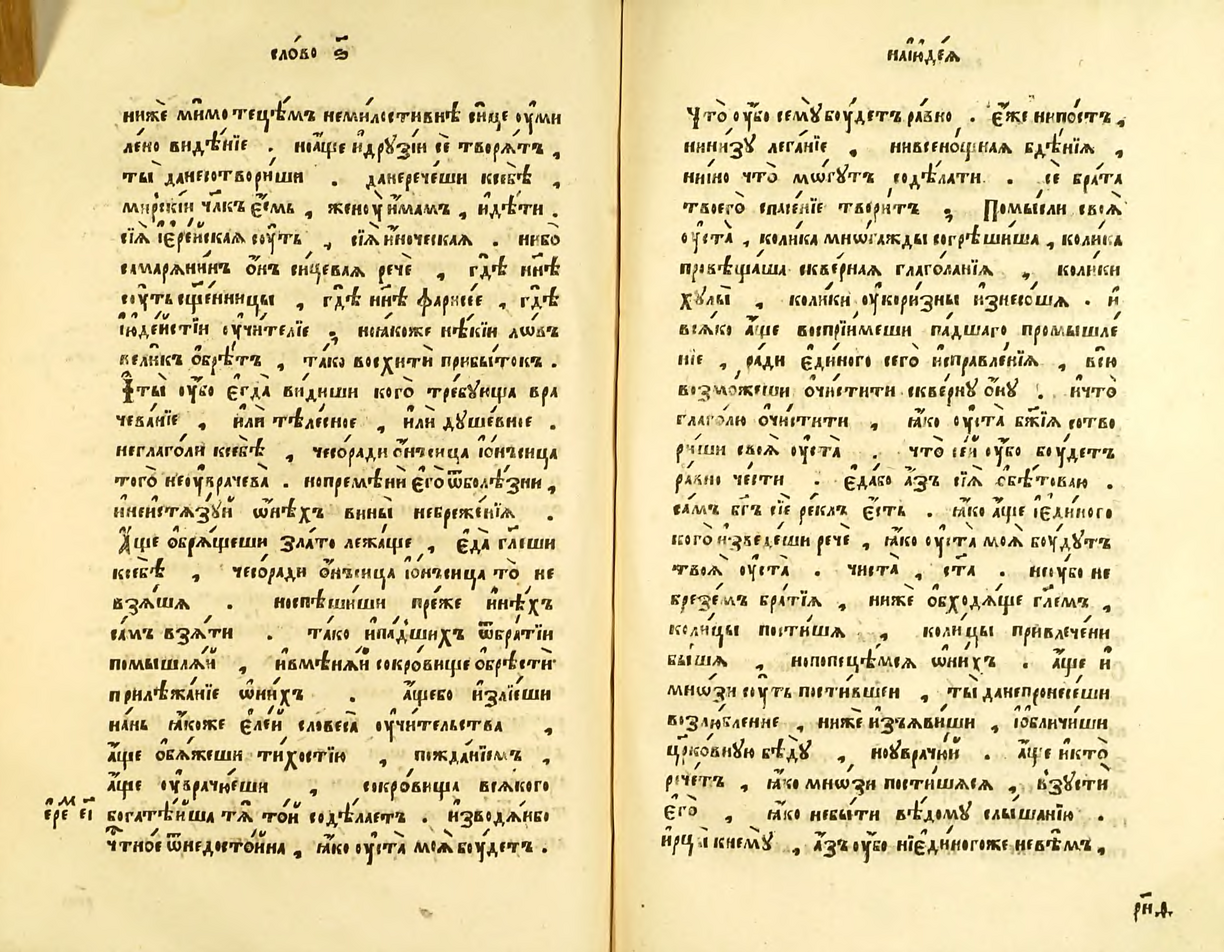 сло́во ѕ҃
нижѐ ми́мо тецѣ́мъ неми́лостивнѣ си́це оу҆ми
ле́но ви́дѣнїе . но а҆́ще и҆ дрꙋзі́и сѐ творѧ́тъ ,
ты̀ да не сотвори́ши . да не рече́ши ксебѣ̀ ,
мирскі́и чл҃къ є҆́смь , женоу̀ и҆́мамъ , и҆ дѣ́ти .
сїѧ̀ і҆ере́йскаѧ соу́ть , сїѧ̀ и҆́ноческаѧ . ни́бо
самарѧни́нъ ѻ҆́нъ си́цеваѧ речѐ , гдѣ̀ нн҃ѣ
соу́ть сщ҃е́нницы , гдѣ̀ нн҃ѣ фарисе́е , гдѣ̀
і҆юде́йстїи оу҆чи́телїе , но ꙗ҆́коже нѣ́кїи ло́въ
вели́къ ѡ҆брѣ́тъ , та́ко восхитѝ прибы́токъ .
И҆ ты̀ оу҆̀бо є҆гда̀ ви́диши кого̀ тре́бꙋюща вра
чева́нїе , и҆лѝ тѣле́сное , и҆лѝ дꙋше́вное .
не глаго́ли ксебѣ̀ , чесо ра́ди ѻ҆́нъсица і҆ѻ́нъсица
того̀ не оу҆врачева̀ . но премѣнѝ є҆го̀ ѿ болѣ́зни ,
и҆ не и҆стѧзꙋ́й ѻ҆́нѣхъ вины̀ небреже́нїѧ .
А҆́ще ѡ҆брѧ́щеши зла́то лежа́ще , є҆да̀ гл҃еши
ксебѣ̀ , чесо ра́ди ѻ҆́нъсица і҆ѻ́нъсица то̀ не
взѧ́шѧ . но спѣши́ши пре́же и҆нѣ́хъ
са́мъ взѧ́ти . та́ко и҆ па́дшихъ ѡ҆брати́и
помышлѧ́й , и҆ вмѣнѧ́й сокро́вище ѡ҆брѣ́сти
прилѣжа́нїе ѡ҆ ни́хъ . а҆́щебо и҆злїе́ши
на́нь ꙗ҆́коже є҆ле́й словеса̀ оу҆чи́тельства ,
а҆́ще ѡ҆бѧ́жеши ти́хостїю , пожда́нїемъ ,
а҆́ще оу҆врачꙋ́еши , сокро́вища всѧ́кого
богатѣ́йша тѧ̀ то́й содѣ́лаетъ . и҆зводѧ́ибо
чт҃но́е ѿ недосто́йна , ꙗ҆́ко оу҆ста̀ моѧ̀ боу́детъ .
і҆ере҃м еі҃
на і҆юде́ѧ
Что̀ оу҆̀бо семꙋ̀ боу́детъ ра́вно . є҆́же ни по́стъ ,
ни ни́зꙋ лега́нїе , ни всено́щнаѧ бдѣ́нїѧ ,
ни и҆́но что̀ мо́гꙋтъ содѣ́лати . се бра́та
твоего̀ спасе́нїе твори́тъ , Помы́сли своѧ̀
оу҆ста̀ , коли́ка мно́гажды согрѣши́ша , коли́ка
провѣща́ша скве́рнаѧ глаго́ланїѧ , коли́ки
хꙋлы̀ , коли́ки оу҆кори́зны и҆знесо́шѧ . и҆
всѧ́ко а҆́ще воспрїи́меши па́дшаго промышле́
нїе , ра́ди є҆ди́ного сего̀ и҆справле́нїѧ , всю̀
возмо́жеши ѡ҆чи́стити скве́рнꙋ ѻ҆́нꙋ . и҆ что̀
глаго́лю ѡ҆чи́стити , ꙗ҆́ко оу҆ста̀ бж҃їѧ сотво
ри́ши своѧ̀ оу҆ста̀ . что̀ се́й оу҆̀бо боу́детъ
ра́вно че́сти . є҆да́бо а҆́зъ сїѧ̀ ѡ҆бѣтова́ю .
са́мъ бг҃ъ сїѐ ре́клъ є҆́сть . ꙗ҆́ко а҆́ще і҆є҆ди́ного
кого̀ и҆зведе́ши речѐ , ꙗ҆́ко оу҆ста̀ моѧ̀ боу́дꙋтъ
твоѧ̀ оу҆ста̀ . чи́ста , ст҃а . не оу҆́бо не
брезе́мъ бра́тїѧ , нижѐ ѡ҆бходѧ́ще гл҃емъ ,
коли́цы пости́шѧ , коли́цы привлече́ни
бы́шѧ , но попеце́мсѧ ѡ҆ ни́хъ . а҆́ще и҆
мно́зи соу́ть пости́вшеи , ты̀ да не пронесе́ши
возлю́бленне , нижѐ и҆зъѧви́ши , і҆ѡ҆бличи́ши
цр҃ко́внꙋю бѣдꙋ̀ , но оу҆врачꙋ́й . а҆́ще и҆ кто̀
рече́тъ , ꙗ҆́ко мно́зи пости́шѧсѧ , ᲂу҆з̾устѝ
є҆го̀ , ꙗ҆́ко не бы́ти вѣ́домꙋ слы́шанїю .
и҆ рцы̀ к немꙋ̀ , а҆́зъ оу҆̀бо нїє҆ди́ногоже невѣ́мъ ,
рн҃д